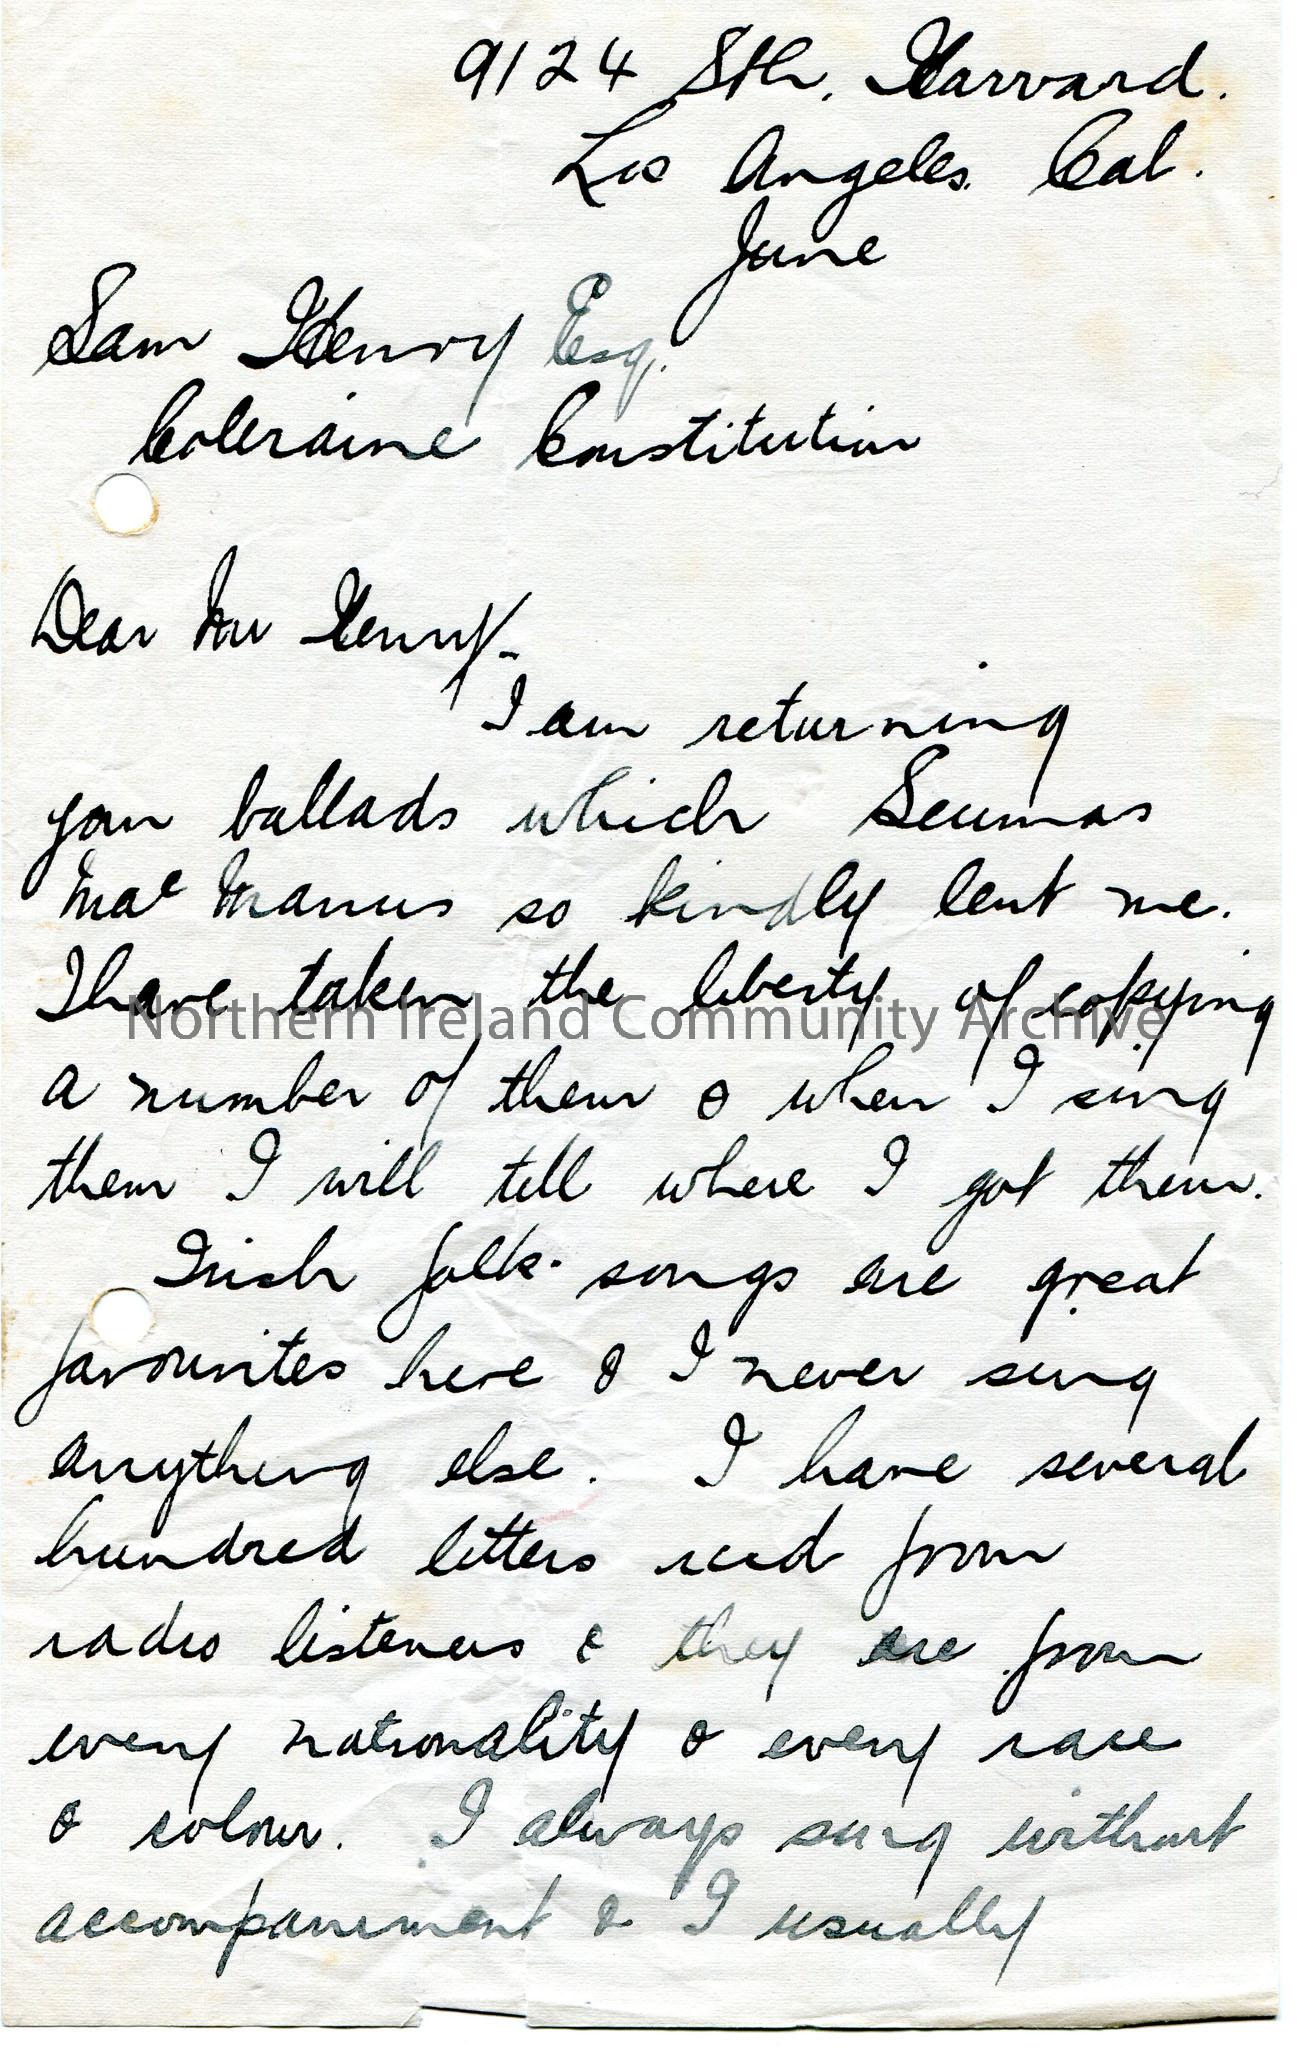 9124 Sth. Harvard.
Los Angeles. Cal.
June
Sam Henry Esq.
Coleraine Constitution
Dear Mr Henry-
I am returning
your ballads which Seumas
Mac Manus so kindly lent me.
I have taken the liberty of copying
Northern Ireland Community Archive
a number of them & when I sing
them I will tell where I got them.
Irish folk-songs are great
favourites here & I never sing
anything else. I have several
hundred letters recd from
radio listeners & they are from
every nationality & every race
& colour. I always sing without
accompaniment & I usually